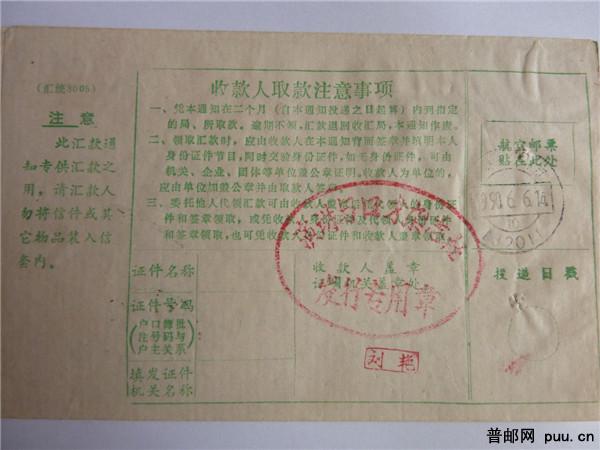 (汇统8005)
注意
此汇款通
知专供汇款之
用,请汇款人
勿将信件或其
它物品装入信
套内。
收款人取款注意事项
一、凭本通知在二个月(自本通知投递之日起算)内到指定
的局、所取款。逾期不领,汇款退回收汇局,本通知作废。
二、领取汇款时,应由收款人在本通知背面签章并填明本人
身份证件节目,同时交验身份证件,如无证件,可由
机关、企业、团体等单位盖公章证明。收款人为单位的,
应由单位加盖公章并由取款人签
三、委托他人代领汇款可由收款
件和签章领取,或凭收款
和签章领取,也可凭收款
证件名称
证件号码
(户口簿批
注号码与
户主关系)
填发证件
机关名称
收款人盖章
证明机关盖章处
发行专用章
刘艳
航空邮票
贴在此处
1990.6.6.14
投递日戳
普邮网 puu.cn